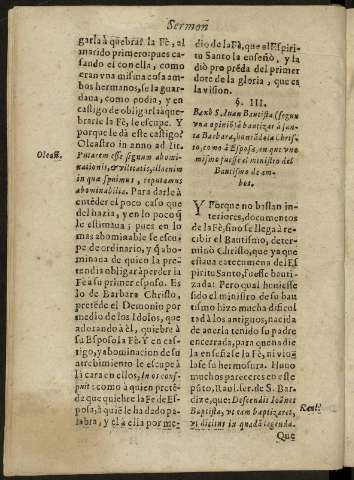 Sermoñ
garla à quebrar la Fè, al
marido primero: pues ca-
sando el con ella, como
eran vna misma cosa am-
bos hermanos, se la guar-
daua, como podia, y en
castigo de obligarla à que-
brarle la Fè, le escupe. Y
porque le dà este castigo?
Oleastro in anno ad lit.
Oleast.
Putarem esse signum abomi-
nationis, & vilitatis, illa enim
in quæ spuimus, reputamus
abominabilia. Para darle à
entẽder el poco caso que
del hazia, y en lo poco q̃
le estimaua; pues en lo
mas abominable se escu-
pe de ordinario, y q̃ abo-
minada de quien la pre-
tendia obligar à perder la
Fè a su primer esposo. Es
lo de Barbara Christo,
pretẽde el Demonio por
medio de los Idolos, que
adorando à èl, quiebre à
su Esposo la Fè. Y en cas-
tigo, y abominacion de su
atrebimiento le escupe à
la cara en ellos, In os cons-
puit: como à quien pretẽ-
de que quiebre la Fe de Es-
posa, à quiẽ le ha dado pa-
labra, y el à ella por me-
dio de la Fè, que el Espiri-
tu Santo la enseñò, y la
diò pro prẽda del primer
dote de la gloria, que es
la vision.
§. III.
Baxò S. Iuan Bautista (segun
vna opiniõ) à bautizar à san-
ta Barbara, honrãdola Chris-
to, como à Esposa, en que vno
mismo fuesse el ministro del
Bautismo de am-
bos.
Y Porque no bastan in-
teriores, documentos
de la Fè, sino se llega à re-
cibir el Bautismo, deter-
minò Christo, que ya que
estaua catecumena del Es-
piritu Santo, fuesse bauti-
zada: Pero qual huuiesse
sido el ministro de su bau
tismo hizo mucha dificul
tad à los antiguos, nacida
de auerla tenido su padre
encerrada, para que nadie
la enseñase la Fè, ni viol
lase su hermosura. Huuo
muchos pareceres en este
pũto, Raul. ser. de S. Bar-
Raul.
dize, que: Descendit Ioãnes
Baptista, vt eam baptizaret,
vt dicitur in quadã legenda.
Que